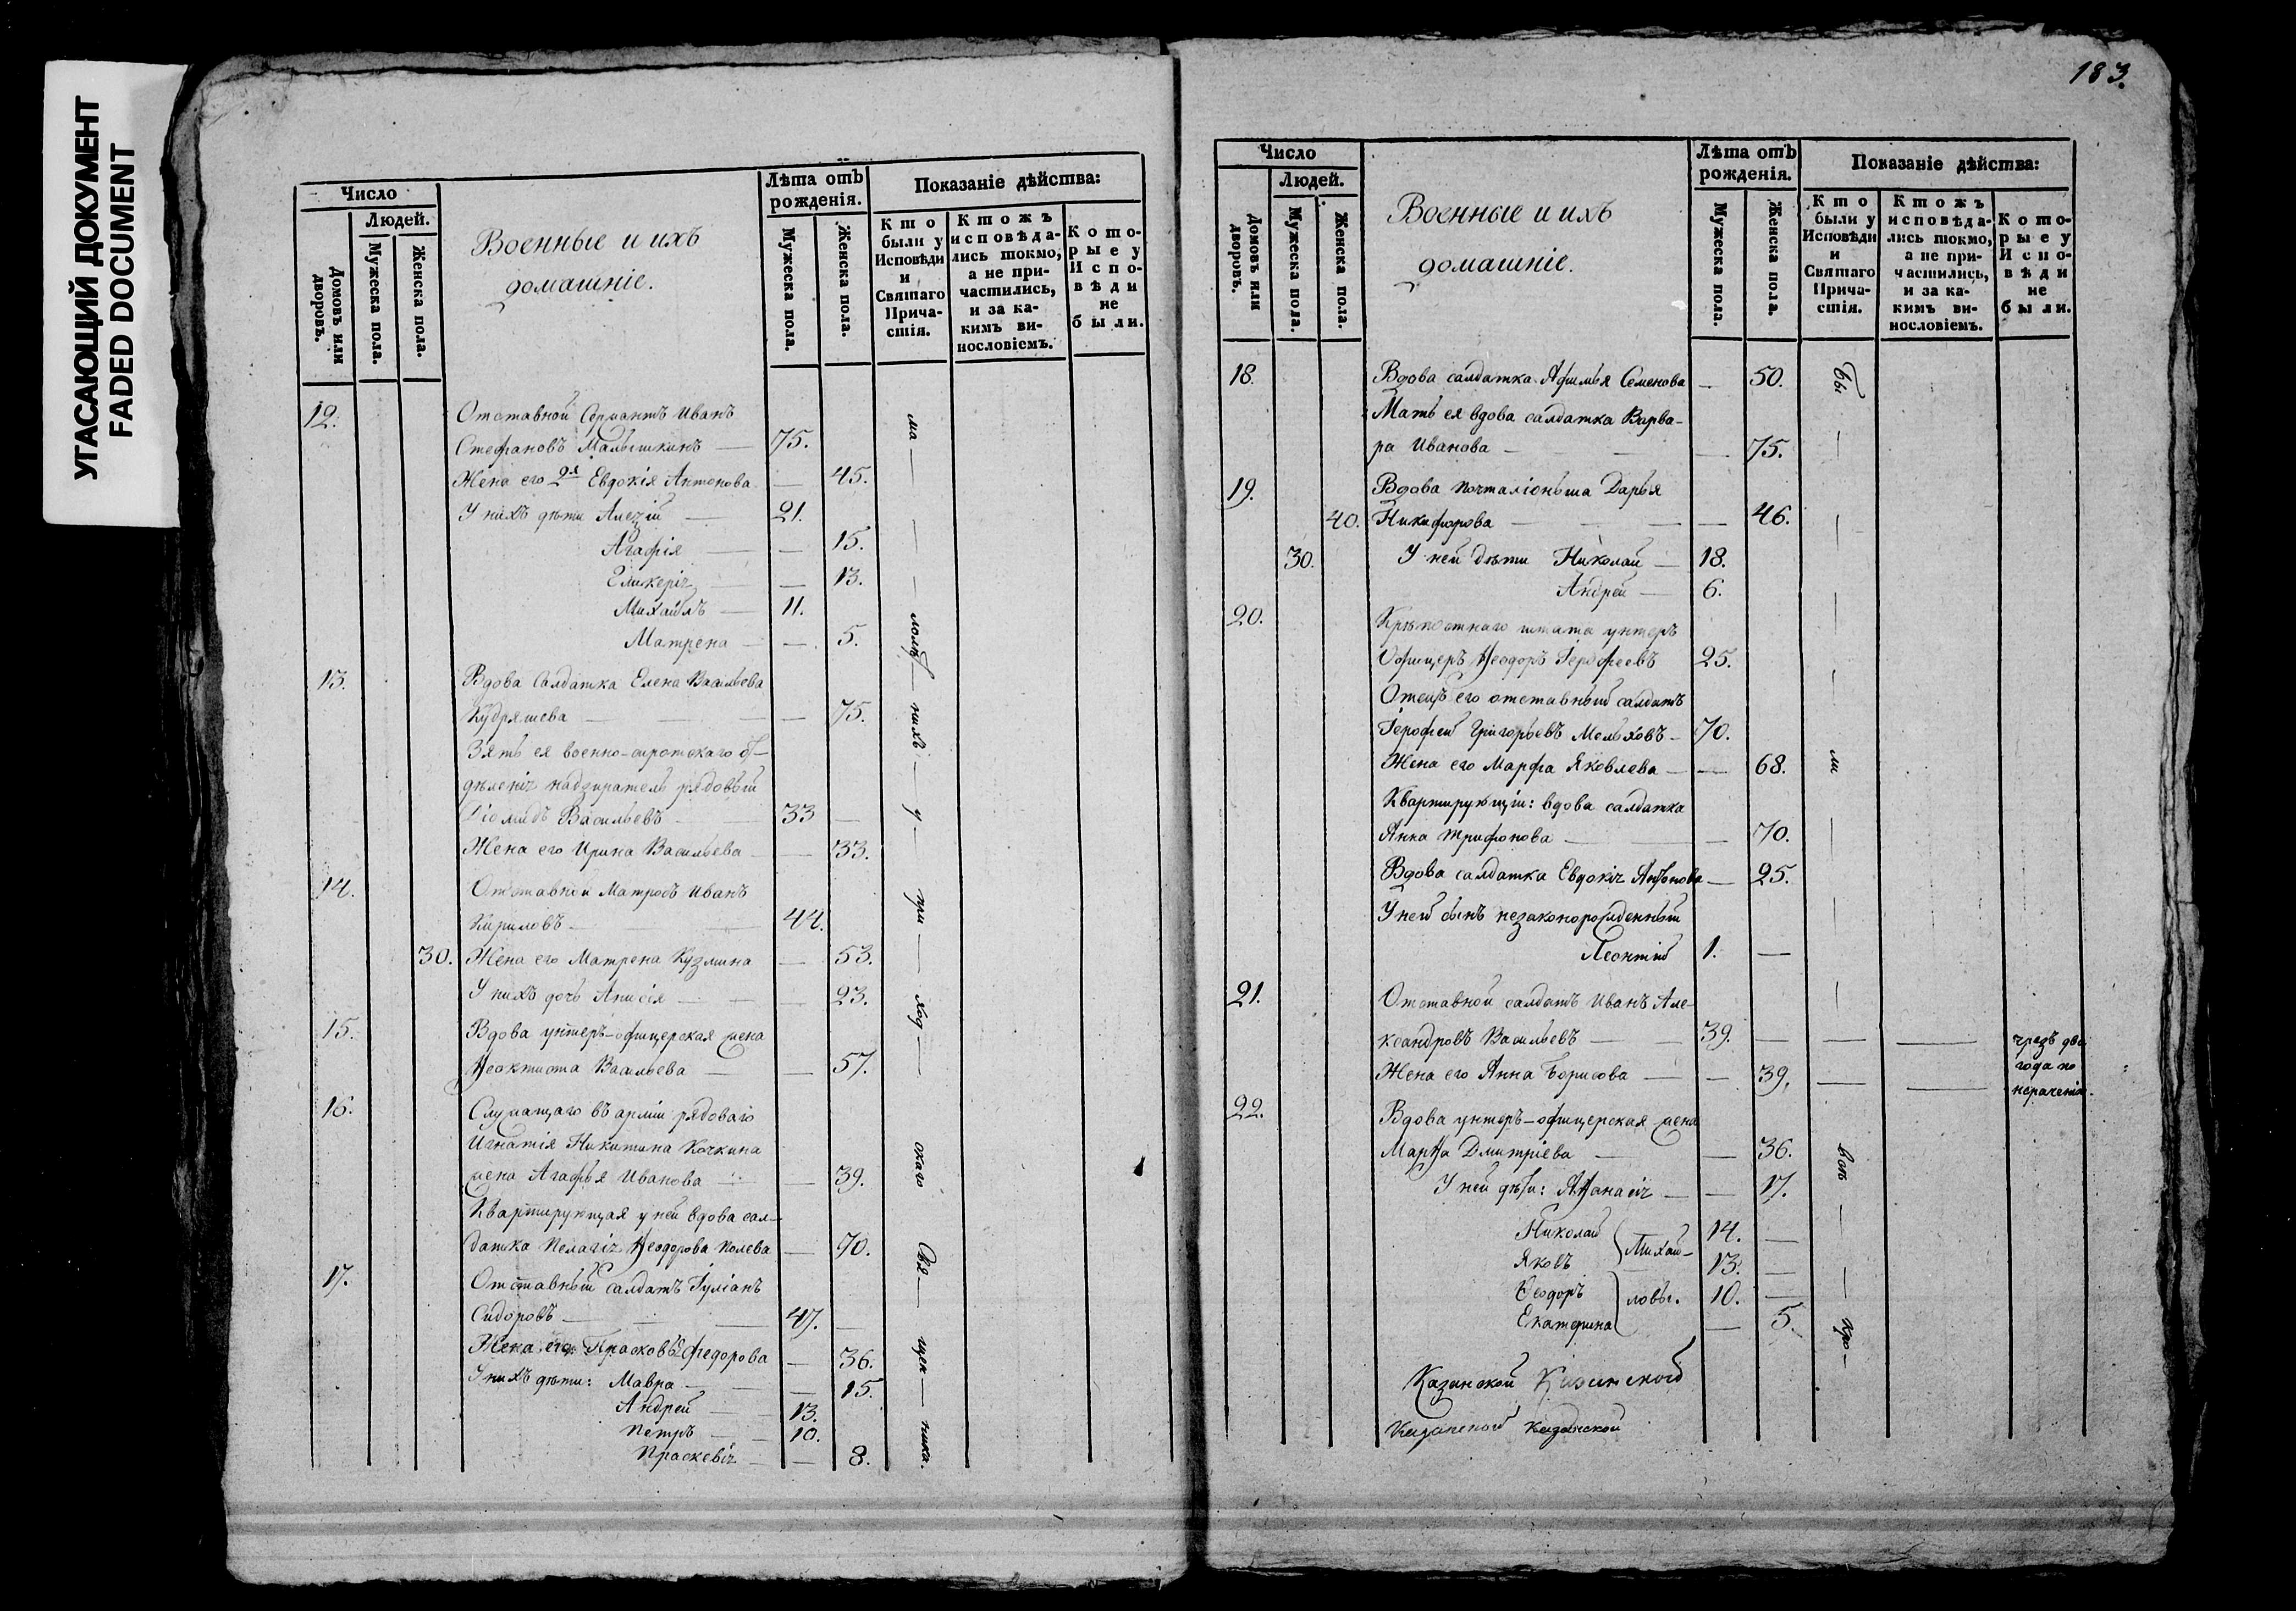 УГАСАЮЩИЙ ДОКУМЕНТ
FADED DOCUMENT
Число
Людей.
Домовъ или дворовъ.
Мужеска пола.
Женска пола.
Военные и ихъ
домашніе.
Лѣта отъ рожденія.
Мужеска пола.
Женска пола.
Показаніе дѣйства:
Кто были у Исповѣди и Святаго Причастія.
Ктожъ исповѣдались токмо, а не причастились, и за какимъ винословіемъ.
Которые у Исповѣди не были.
12. Отставной Сержантъ Иванъ
Стефановъ Малышкинъ — 75.
Жена его 2я Евдокія Антонова — 45.
У нихъ дѣти Алезій — 21.
Агафія — — 15.
Гликерія — — 13.
Михайлъ — 11.
Матрена — — 5.
13. Вдова Салдатка Елена Васильева
Кудряшева — — 75.
Зять ея военно-сиротскаго от-
дѣленія надзиратель рядовый
Діомидъ Васильевъ — 33 —
Жена его Ирина Васильева — — 33.
14. Отставной Матросъ Иванъ
Кириловъ — 44.
30. Жена его Матрена Кузмина — 53.
У нихъ дочь Анисія — — 23.
15. Вдова унтеръ-офицерская жена
Ѳеоктиста Васильева — — 57.
16. Служащаго въ арміи рядоваго
Игнатія Никитина Кочкина
жена Агафья Иванова — — 39.
Квартирующая у ней вдова сал-
датка Пелагія Ѳеодорова Полева — 70.
17. Отставный салдатъ Іуліанъ
Сидоровъ — 47. —
Жена его Прасковья Федорова — 36.
У нихъ дѣти: Мавра — — 15.
Андрей — 13.
Петръ — 10.
Праскевія — — 8.
ма — — — — ломѣ — нихъ — у — при — ход — — скаго Свя — щен — ника.
183.
Число
Людей.
Домовъ или дворовъ.
Мужеска пола.
Женска пола.
Военные и ихъ
домашніе.
Лѣта отъ рожденія.
Мужеска пола.
Женска пола.
Показаніе дѣйства:
Кто были у Исповѣди и Святаго Причастія.
Ктожъ исповѣдались токмо, а не причастились, и за какимъ винословіемъ.
Которые у Исповѣди не были.
18. Вдова салдатка Афимья Семенова — 50.
Мать ея вдова салдатка Варва-
ра Иванова — — 75.
19. Вдова почталіонша Дарья
40. Никифорова — — 46.
30. У ней дѣти Николай — 18.
Андрей — 6.
20. Крѣпостнаго штата унтеръ
Офицеръ Ѳеодоръ Герофеевъ 25.
Отецъ его отставный салдатъ
Герофей Григорьевъ Мельховъ — 70.
Жена его Марфа Яковлева — — 68.
Квартирующіи: вдова салдатка
Анна Трифонова — — 70.
Вдова салдатка Евдокія Антонова — 25.
У ней сынъ незаконорожденный
Леонтій 1. —
21. Отставной салдатъ Иванъ Але-
ксандровъ Васильевъ — 39. — — — чрезъ два
года по
нераченію.
Жена его Анна Борисова — — 39. — —
22. Вдова унтеръ-офицерская жена
Марѳа Дмитріева — — 36.
У ней дѣти: Аѳанасія — — 17.
Николай 14. —
Яковъ 13. —
Ѳеодоръ 10. —
Екатерина — 5.
Михай-
ловы.
бы — — — — — ли — — — вотъ — — кро —
Казанской Казанской
Казанской Казанской